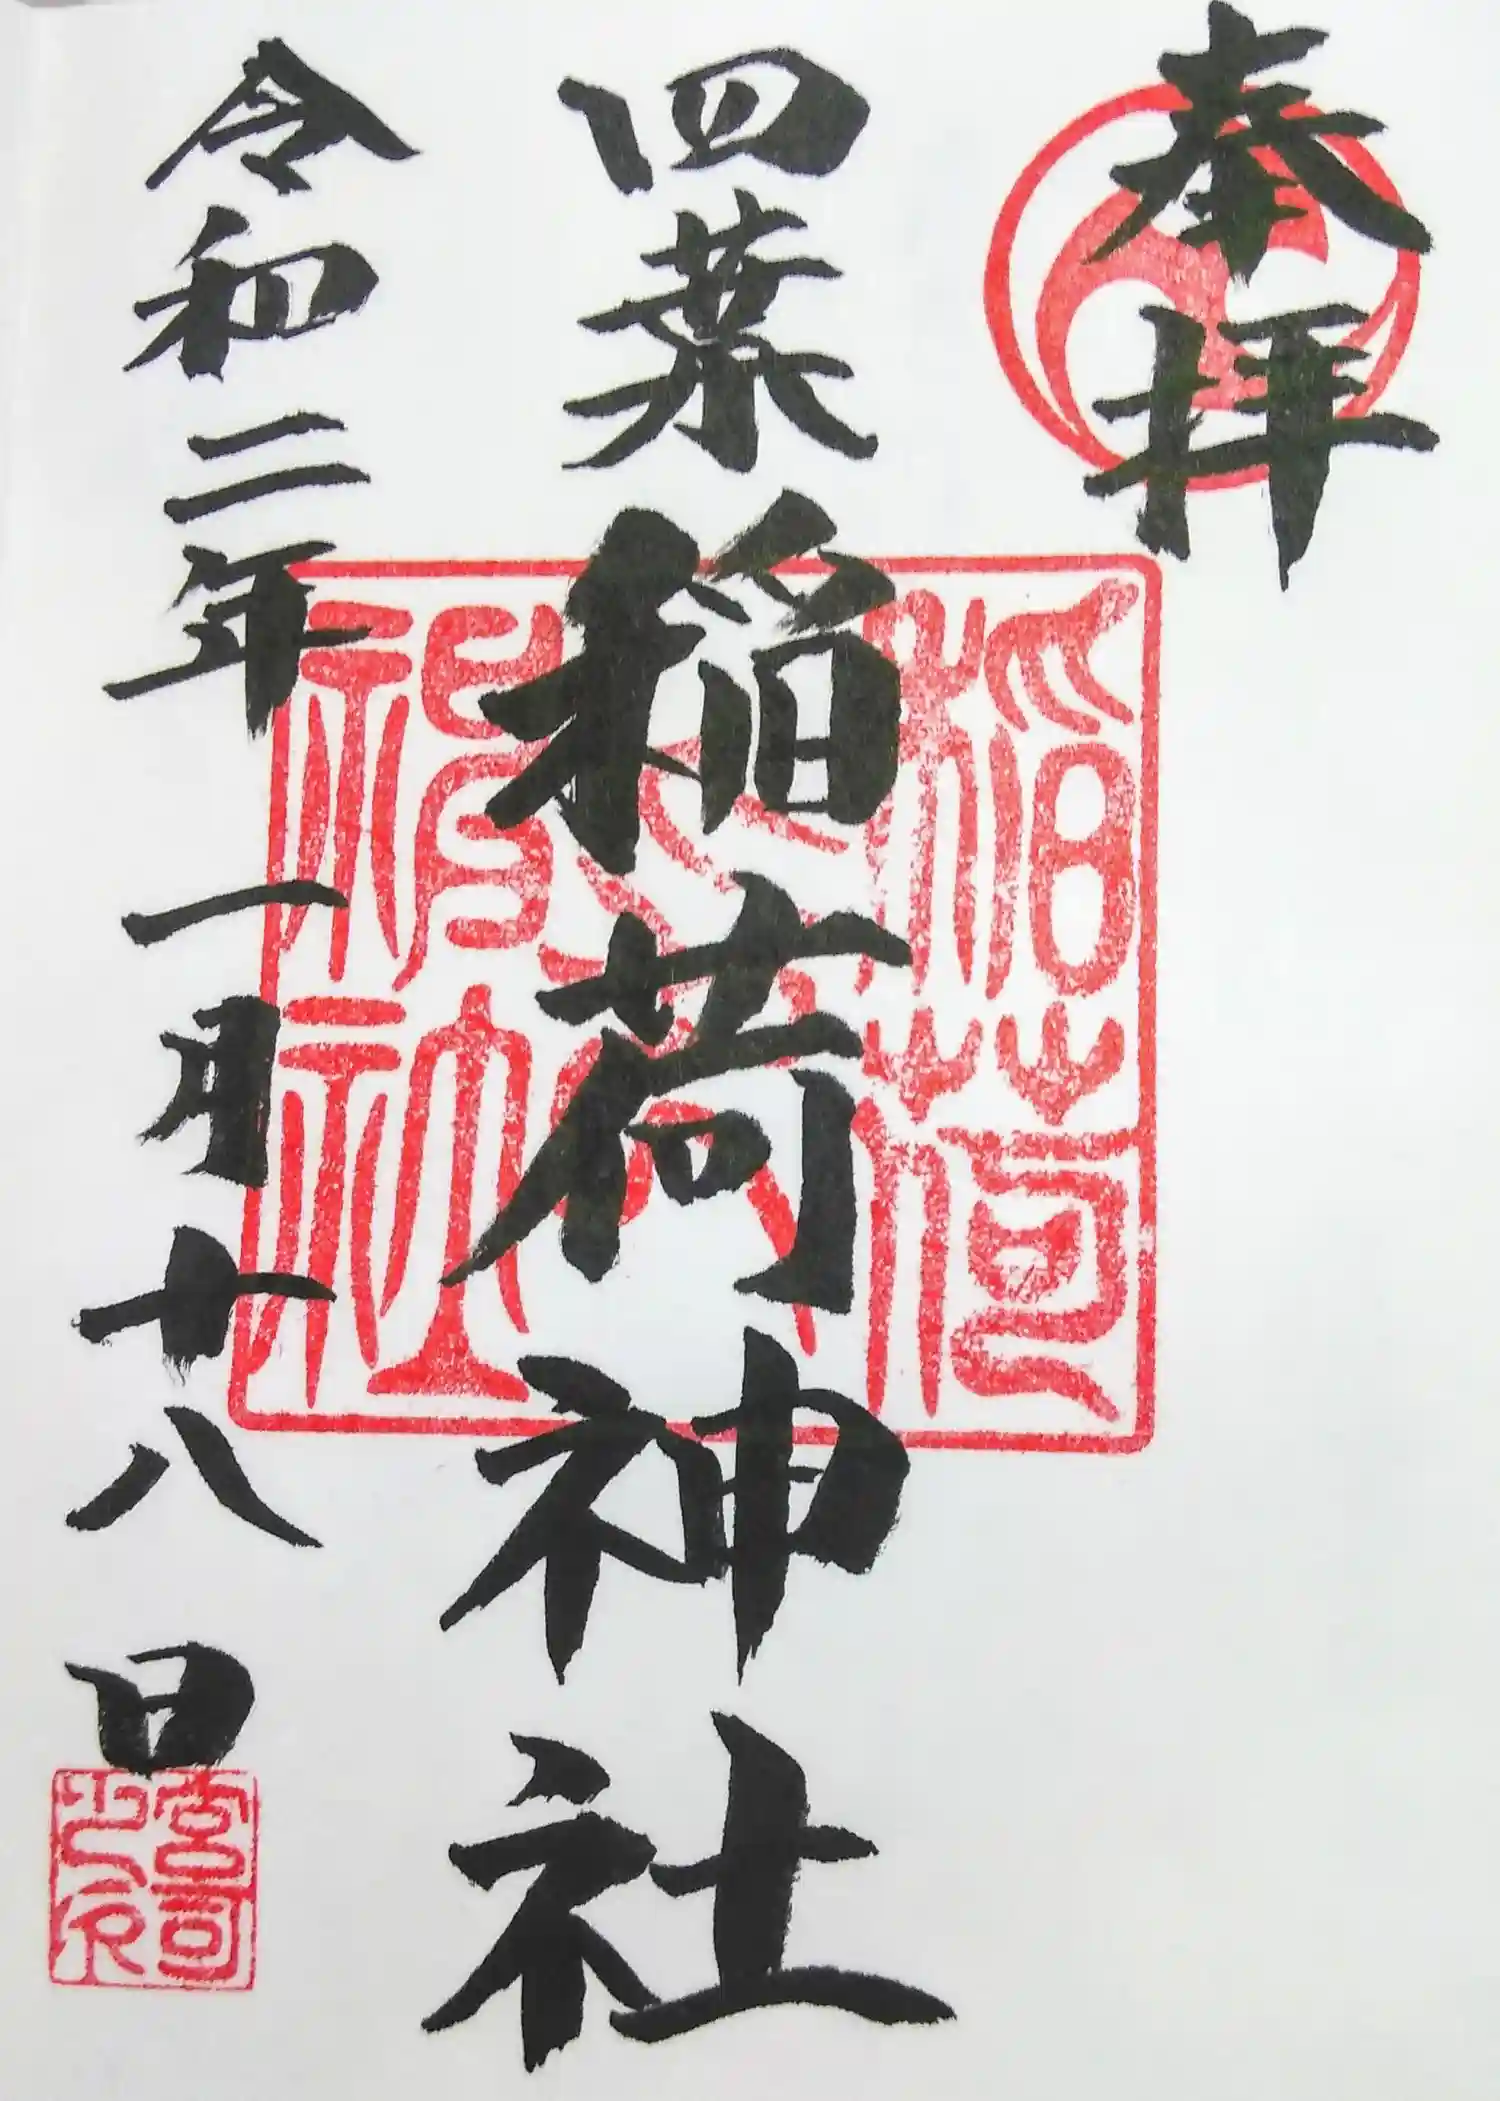 奉拝
四葉稲荷神社
令和二年一月廿八日
稲荷
神社
宮司
之印